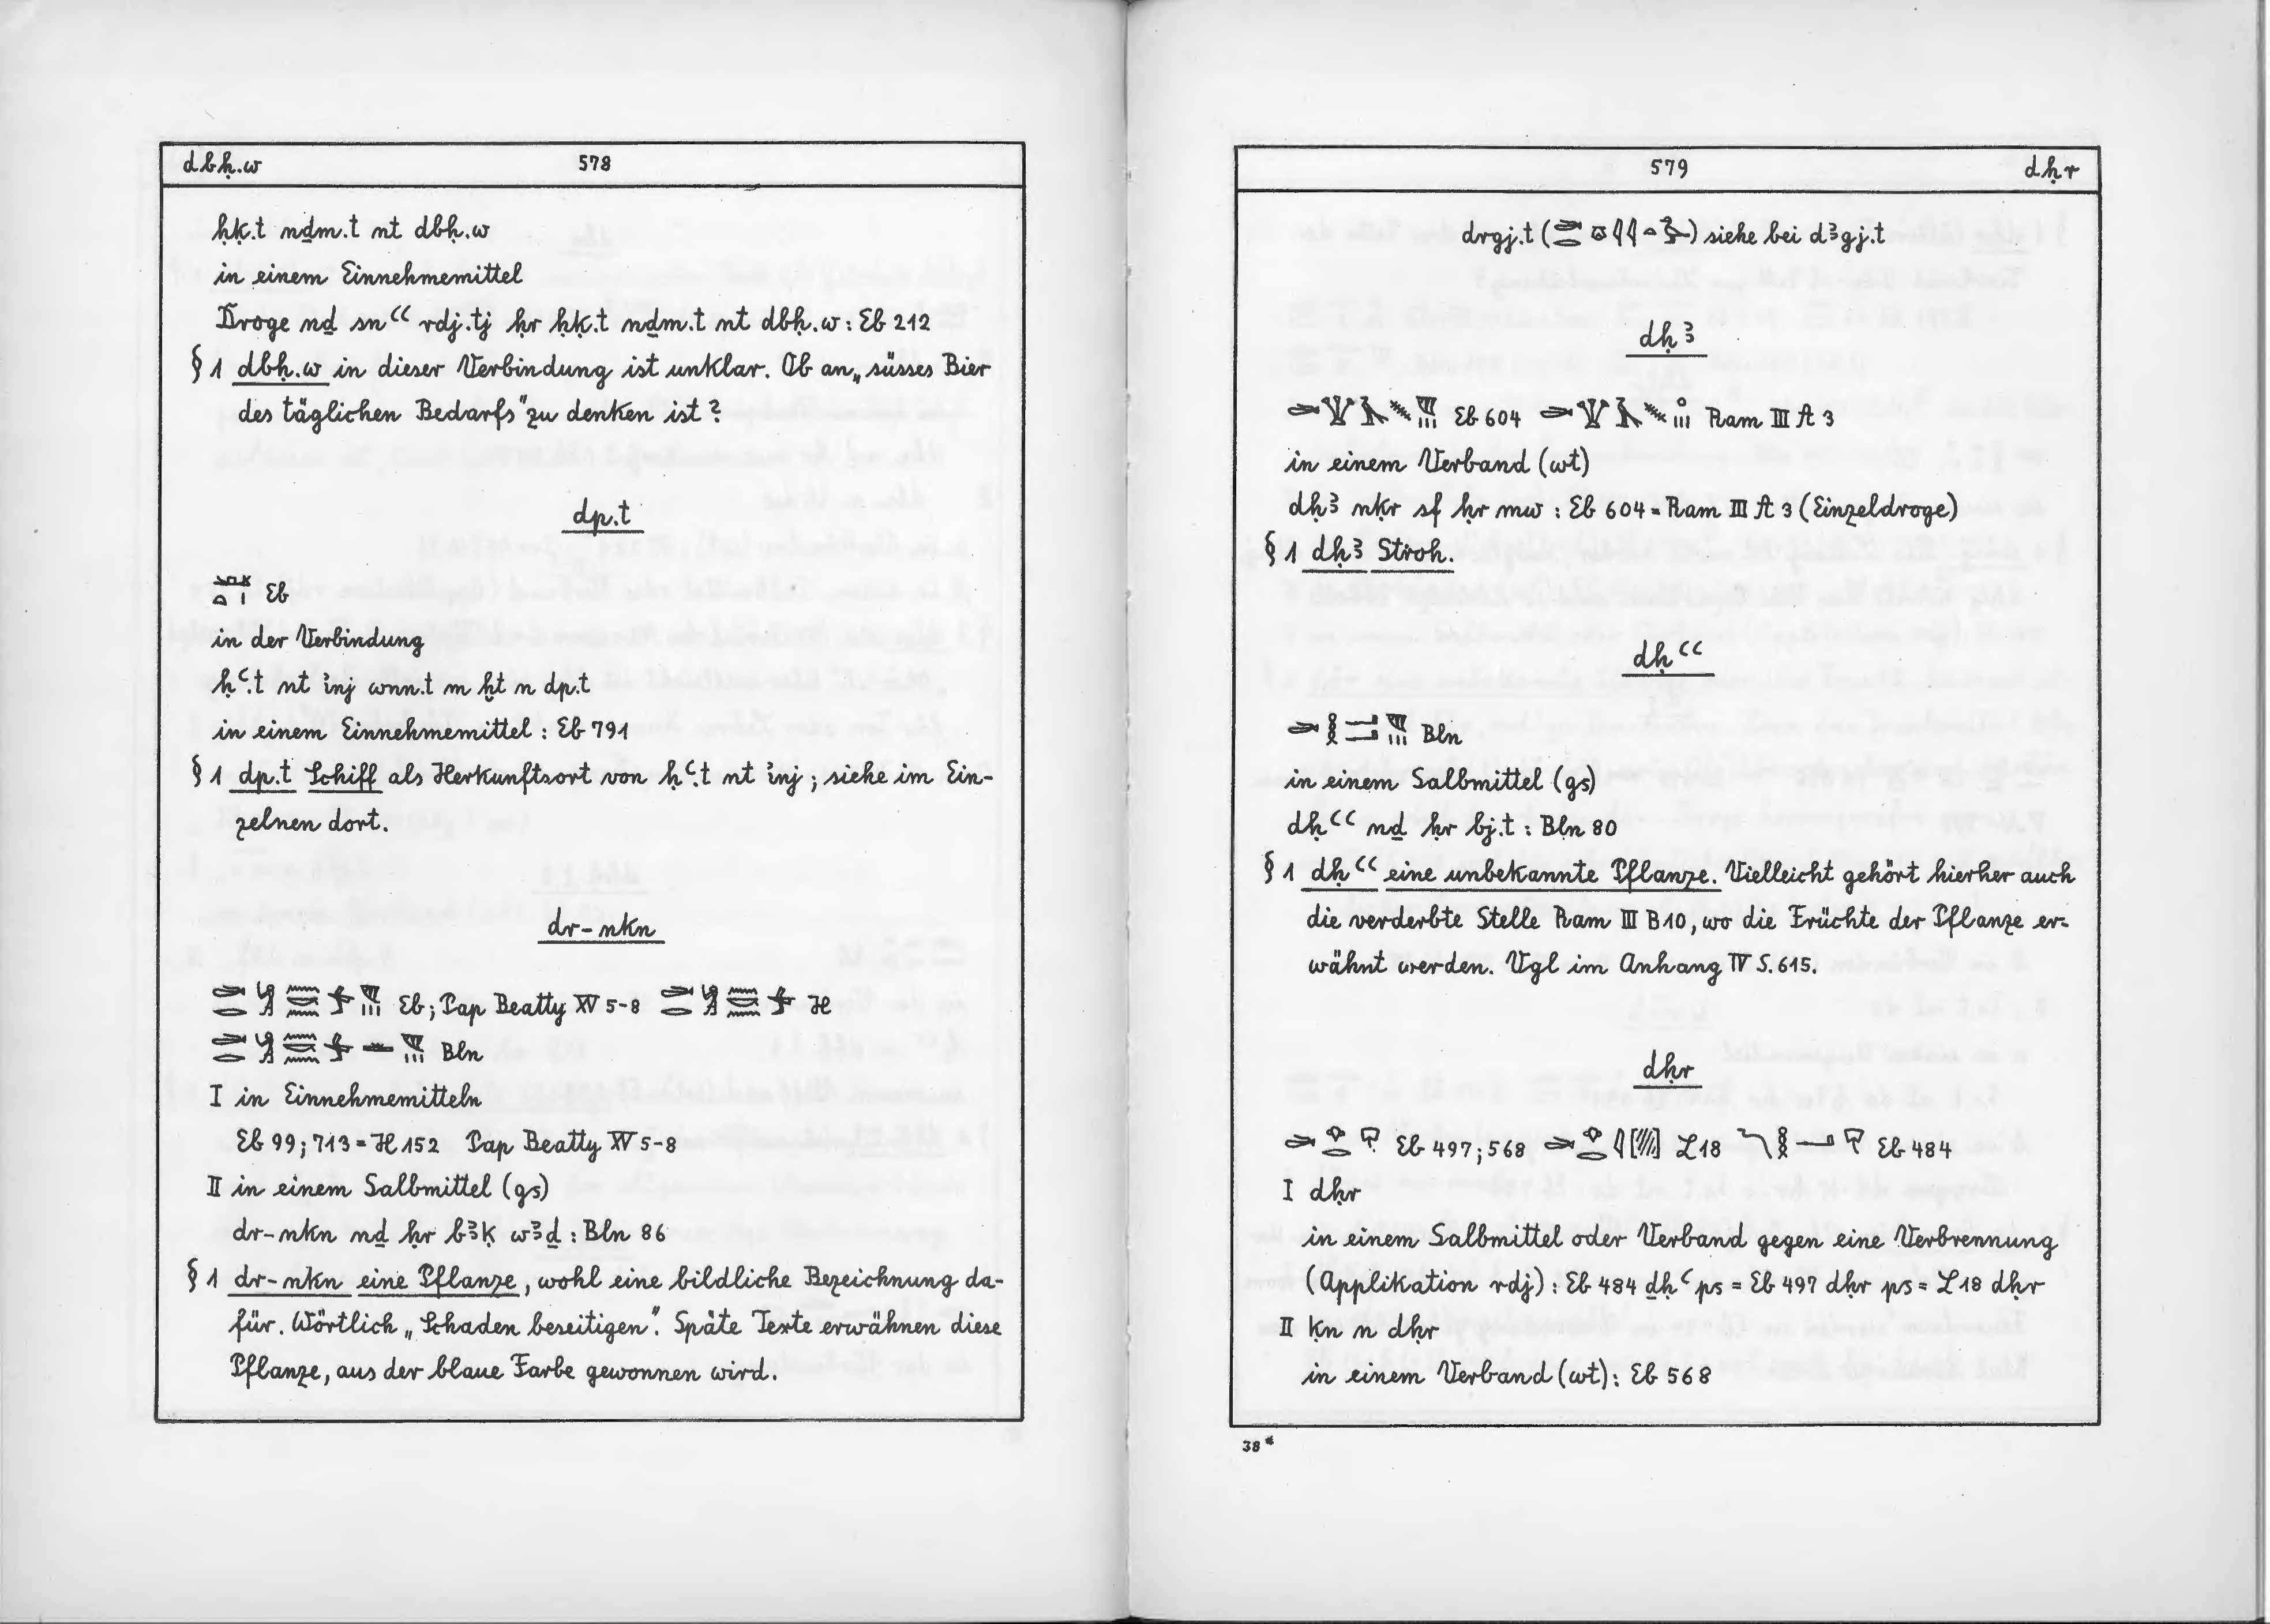 dbḥ.w 578
ḥḳ.t nḏm.t nt dbḥ.w
in einem Einnehmemittel
Droge nḏ snꜥꜥ rdj.tj ḥr ḥḳ.t nḏm.t nt dbḥ.w : Eb 212
§ 1 dbḥ.w in dieser Verbindung ist unklar. Ob an „süsses Bier
des täglichen Bedarfs" zu denken ist?
dp.t
Eb
in der Verbindung
ḥꜥ.t nt ꞽnj wnn.t m ḫt n dp.t
in einem Einnehmemittel : Eb 791
§ 1 dp.t Schiff als Herkunftsort von ḥꜥ.t nt ꞽnj ; siehe im Ein-
zelnen dort.
dr-nkn
Eb ; Pap Beatty XV 5-8 H
Bln
I in Einnehmemitteln
Eb 99 ; 713 = H 152 Pap Beatty XV 5-8
II in einem Salbmittel (gs)
dr-nkn nḏ ḥr bꜣḳ wꜣḏ : Bln 86
§ 1 dr-nkn eine Pflanze, wohl eine bildliche Bezeichnung da-
für. Wörtlich „Schaden beseitigen". Späte Texte erwähnen diese
Pflanze, aus der blaue Farbe gewonnen wird.
579 dḥr
drgj.t ( ) siehe bei dꜣgj.t
dḥꜣ
Eb 604 Ram III A 3
in einem Verband (wt)
dḥꜣ nḳr sf ḥr mw : Eb 604 = Ram III A 3 (Einzeldroge)
§ 1 dḥꜣ Stroh.
dḥꜥꜥ
Bln
in einem Salbmittel (gs)
dḥꜥꜥ nḏ ḥr bj.t : Bln 80
§ 1 dḥꜥꜥ eine unbekannte Pflanze. Vielleicht gehört hierher auch
die verderbte Stelle Ram III B 10, wo die Früchte der Pflanze er-
wähnt werden. Vgl im Anhang IV S. 615.
dḥr
Eb 497 ; 568 L 18 Eb 484
I dḥr
in einem Salbmittel oder Verband gegen eine Verbrennung
(Applikation rdj) : Eb 484 ḏḥꜥ ps = Eb 497 dḥr ps = L 18 dḥr
II ḳn n dḥr
in einem Verband (wt) : Eb 568
38*